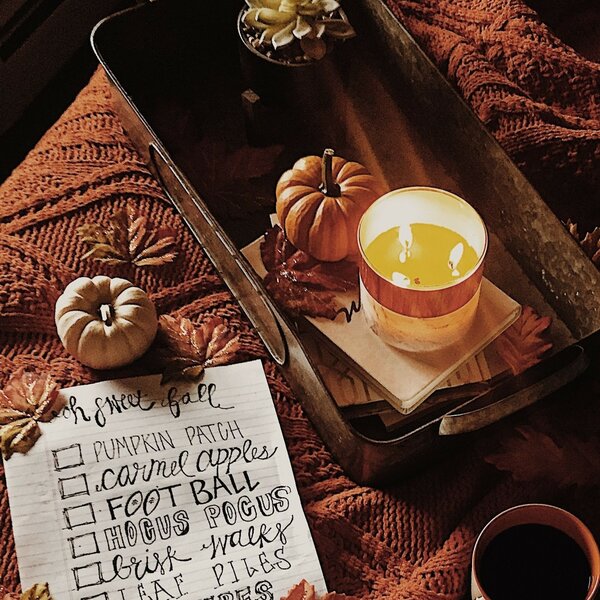 sweet fall
PUMPKIN PATCH
carmel apples
FOOTBALL
HOCUS POCUS
brisk walks
LEAF PILES